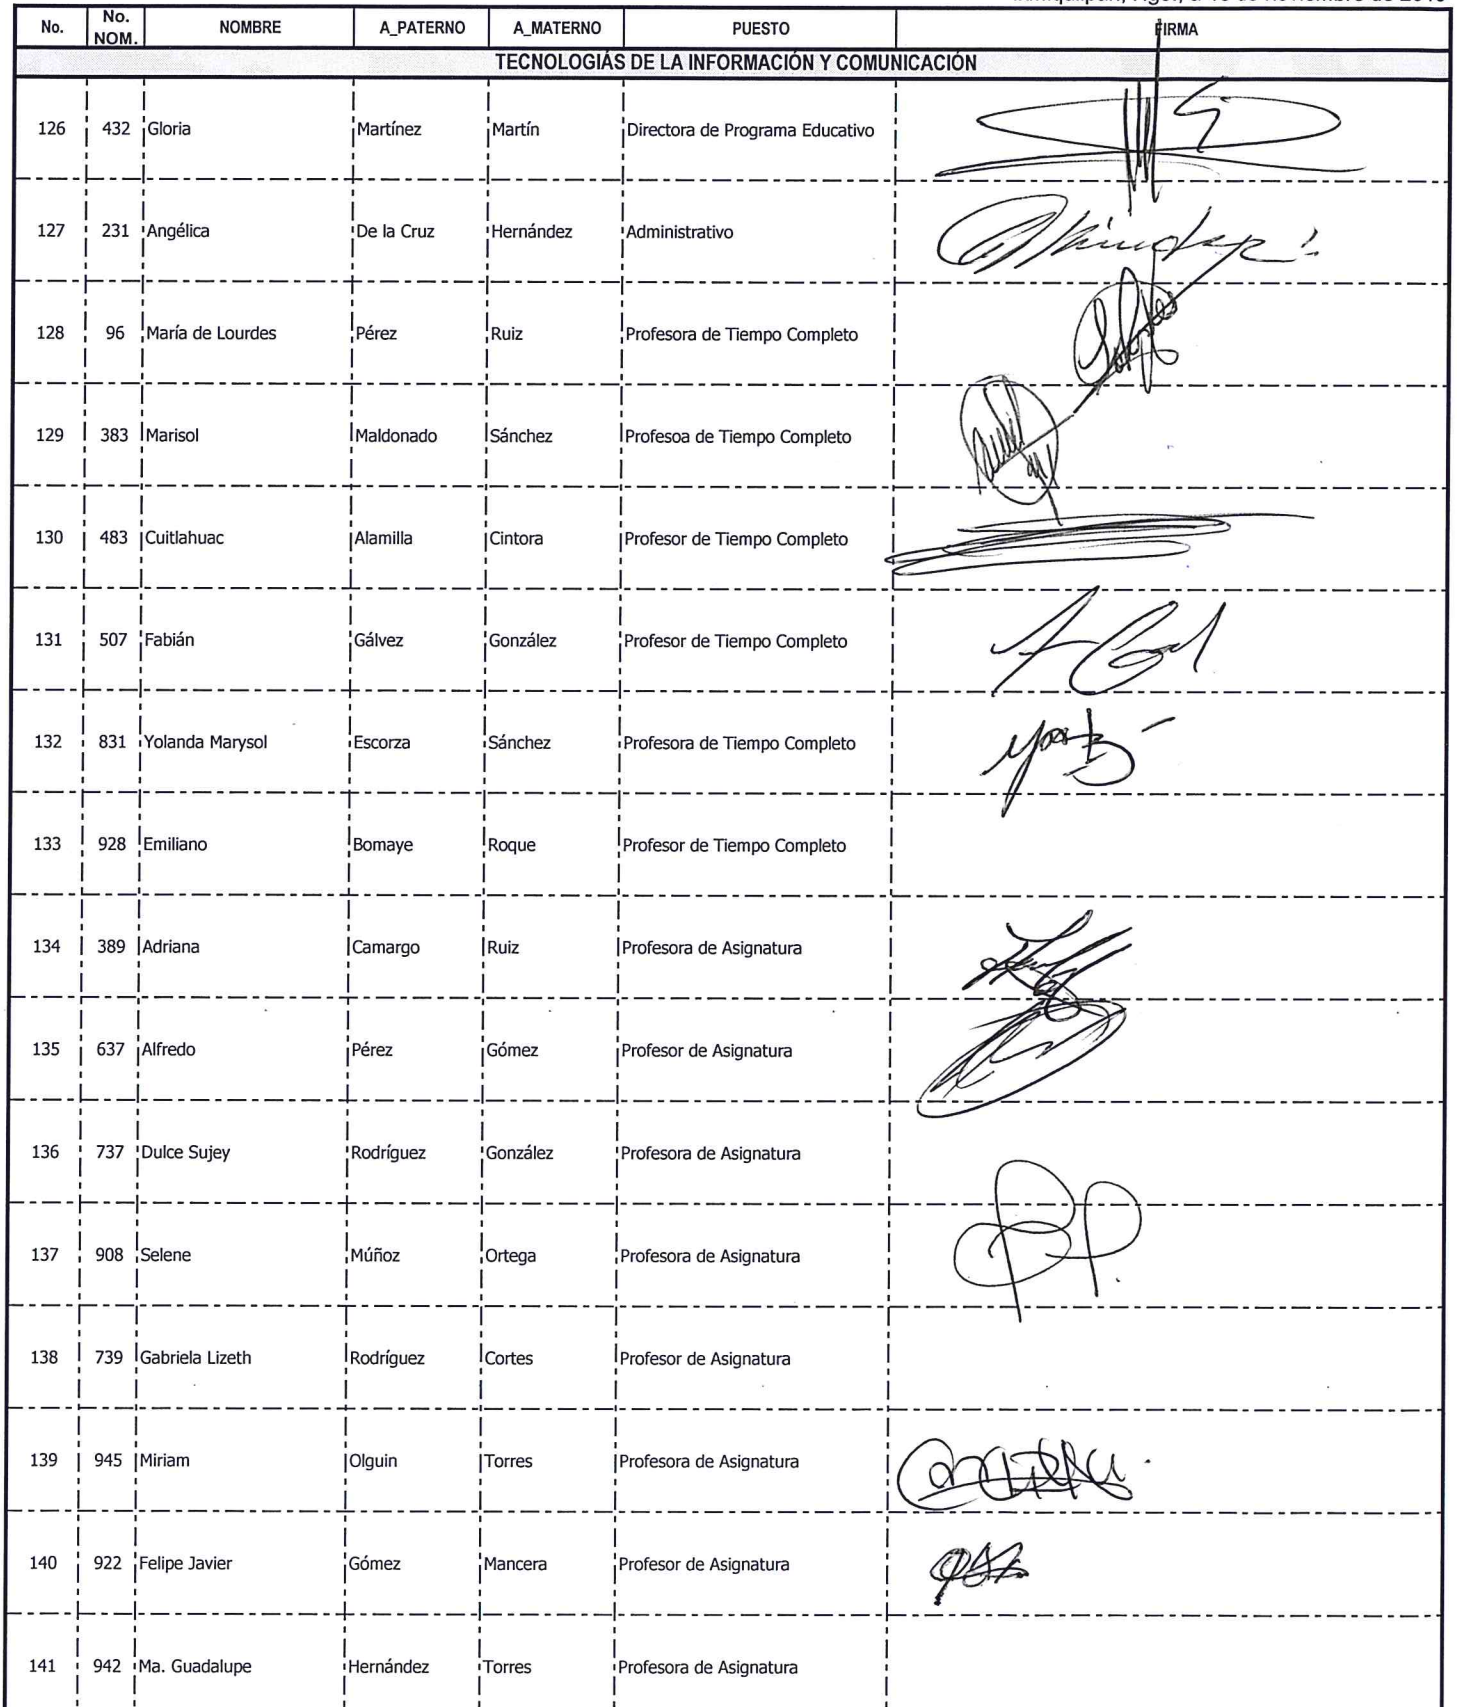 No. No. NOM. NOMBRE A_PATERNO A_MATERNO PUESTO FIRMA
TECNOLOGIÁS DE LA INFORMACIÓN Y COMUNICACIÓN
126 432 Gloria Martínez Martín Directora de Programa Educativo
127 231 Angélica De la Cruz Hernández Administrativo
128 96 María de Lourdes Pérez Ruiz Profesora de Tiempo Completo
129 383 Marisol Maldonado Sánchez Profesoa de Tiempo Completo
130 483 Cuitlahuac Alamilla Cintora Profesor de Tiempo Completo
131 507 Fabián Gálvez González Profesor de Tiempo Completo
132 831 Yolanda Marysol Escorza Sánchez Profesora de Tiempo Completo
133 928 Emiliano Bomaye Roque Profesor de Tiempo Completo
134 389 Adriana Camargo Ruiz Profesora de Asignatura
135 637 Alfredo Pérez Gómez Profesor de Asignatura
136 737 Dulce Sujey Rodríguez González Profesora de Asignatura
137 908 Selene Múñoz Ortega Profesora de Asignatura
138 739 Gabriela Lizeth Rodríguez Cortes Profesor de Asignatura
139 945 Miriam Olguin Torres Profesora de Asignatura
140 922 Felipe Javier Gómez Mancera Profesor de Asignatura
141 942 Ma. Guadalupe Hernández Torres Profesora de Asignatura